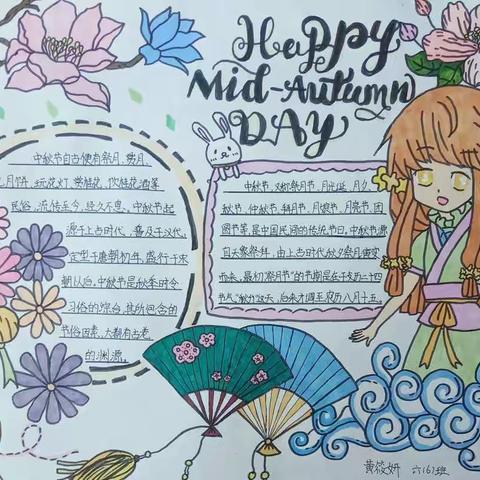 Happy
Mid-Autumn
DAY
中秋节自古便有祭月、赏月、
吃月饼、玩花灯、赏桂花、饮桂花酒等
民俗,流传至今,经久不息。中秋节起
源于上古时代,普及于汉代,
定型于唐朝初年,盛行于宋
朝以后。中秋节是秋季时令
习俗的综合,其所包含的
节俗因素,大都有古老
的渊源。
中秋节,又称祭月节、月光诞、月夕、
秋节、仲秋节、拜月节、月娘节、月亮节、团
圆节等,是中国民间的传统节日。中秋节源
自天象崇拜,由上古时代秋夕祭月演变
而来。最初“祭月节”的节期是在干支历二十四
节气“秋分”这天,后来才调至农历八月十五。
黄筱妍 六(6)班